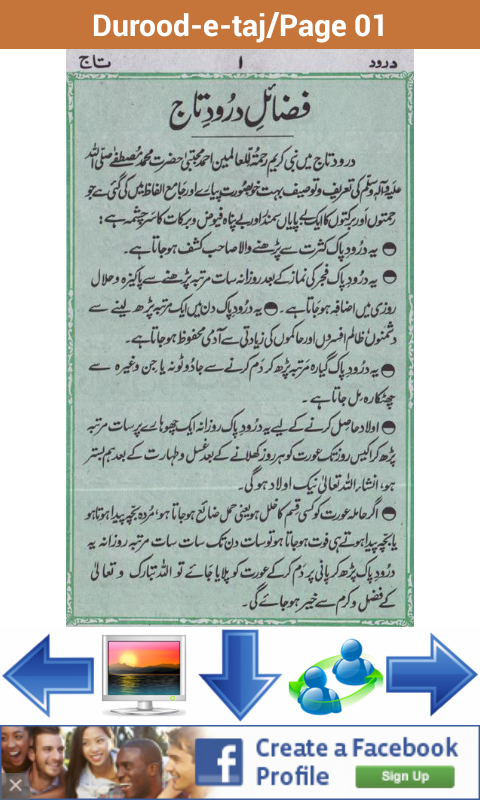 Durood-e-taj/Page 01
درود ۱ تاج
فضائلِ درُودِ تاج
درود تاج میں نبی کریم رحمۃٌ للعالمین احمد مجتبیٰ حضرت محمد مُصطفےٰ صلی اللہ
علیہ وآلہٖ وسلّم کی تعریف و توصیف بہت خوبصورت پیارے اور جامع الفاظ میں کی گئی ہے جو
رحمتوں اور برکتوں کا ایک بے پایاں سمندر اور بے پناہ فیوض و برکات کا سرچشمہ ہے :
یہ درُودِ پاک کثرت سے پڑھنے والا صاحب کشف ہوجاتا ہے۔
یہ درُودِ پاک فجر کی نماز کے بعد روزانہ سات مرتبہ پڑھنے سے پاکیزہ و حلال
روزی میں اضافہ ہوجاتا ہے۔ یہ درُودِ پاک دن میں ایک مرتبہ پڑھ لینے سے
دشمنوں ظالم افسروں اور حاکموں کی زیادتی سے آدمی محفوظ ہوجاتا ہے۔
یہ درُودِ پاک گیارہ مرتبہ پڑھ کر دَم کرنے سے جادُو ٹونہ یا جِن وغیرہ سے
چھٹکارہ مل جاتا ہے ۔
اولاد حاصل کرنے کے لیے یہ درُودِ پاک روزانہ ایک چھوہارے پر سات مرتبہ
پڑھ کر اکیس روز تک عورت کو ہر روز کھلانے کے بعد غسل و طہارت کے بعد ہم بستر
ہو، انشاءاللہ تعالیٰ نیک اولاد ہو گی۔
اگر حاملہ عورت کو کسی قسم کا خلل ہو یعنی حمل ضائع ہوجاتا ہو، مُردہ بچّہ پیدا ہوتا ہو
یا بچّہ پیدا ہوتے ہی فوت ہوجاتا ہو تو سات دن تک سات سات مرتبہ روزانہ یہ
درُودِ پاک پڑھ کر پانی پر دَم کر کے عورت کو پلایا جائے تو اللہ تبارک و تعالیٰ
کے فضل و کرم سے خیر ہو جائے گی۔
Create a Facebook
Profile
Sign Up